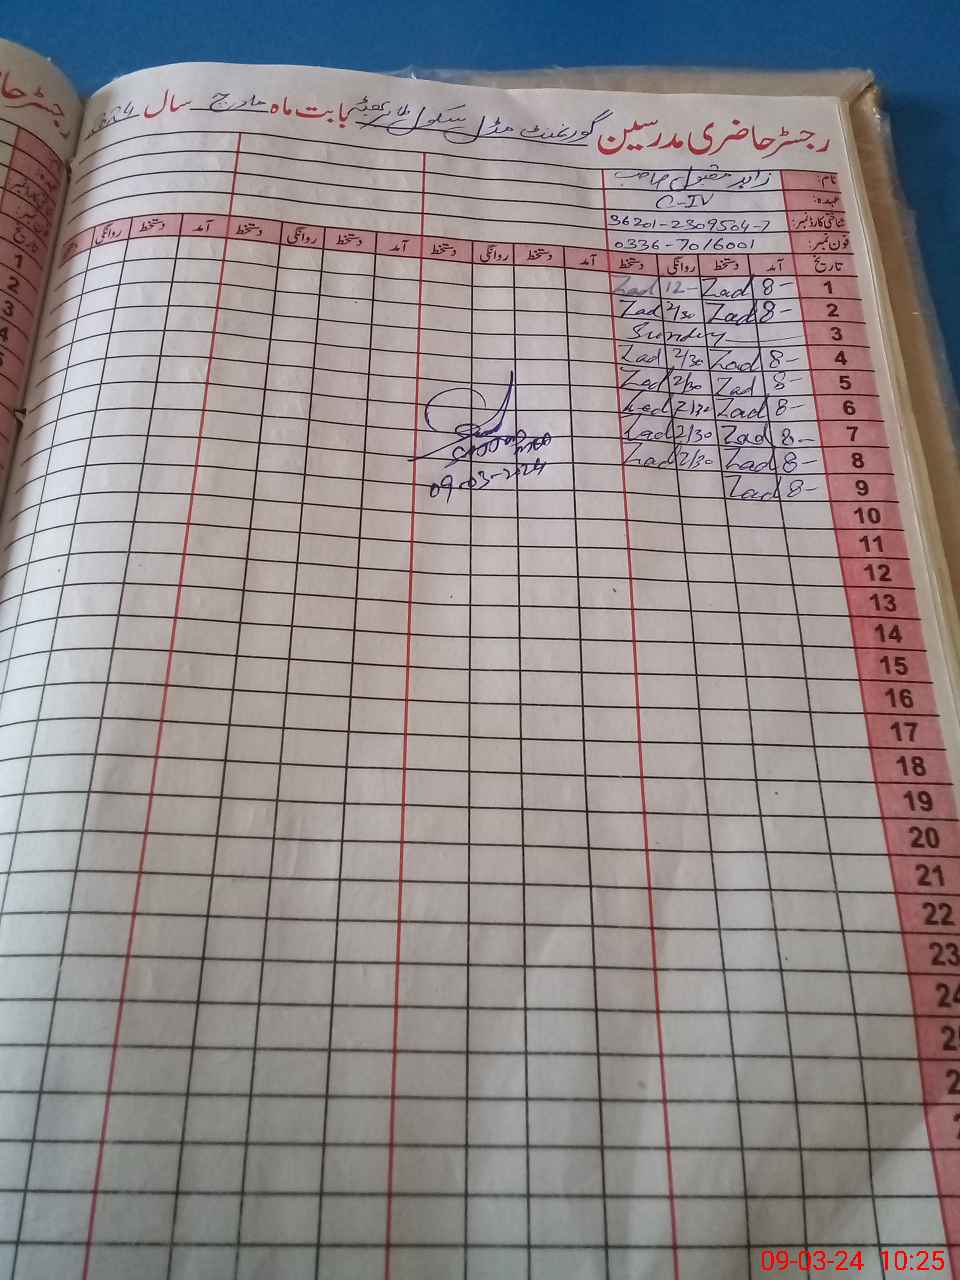 رجسٹر حاضری مدرسین گورنمنٹ مڈل سکول بابت ماہ مارچ سال 2024
نام: زاہد مقبول صاحب
عہدہ: C-IV
شناختی کارڈ نمبر: 36201-2309504-7
فون نمبر: 0336-7016001
تاریخ آمد دستخط روانگی دستخط آمد دستخط روانگی دستخط آمد دستخط روانگی دستخط
1 8- Zad 12- Zad
2 8- Zad 2/30 Zad
3 Sunday
4 8- Zad 2/30 Zad
5 8- Zad 2/30 Zad
6 8- Zad 2/30 Zad
7 8- Zad 2/30 Zad
8 8- Zad 2/30 Zad
9 8- Zad
09-03-2024
10
11
12
13
14
15
16
17
18
19
20
21
22
23
24
رجسٹر حا
تاریخ
1
2
3
4
5
09-03-24 10:25